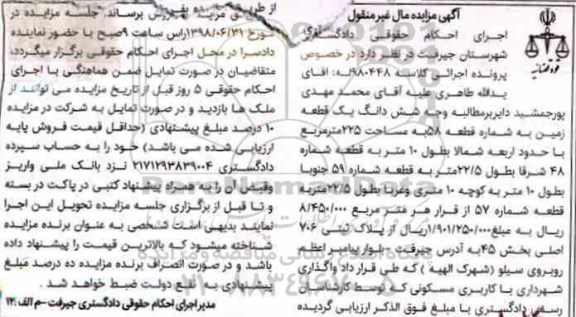 آگهی مزایده مال غیر منقول
اجرای احکام حقوقی دادگستری
شهرستان جیرفت در نظر دارد در خصوص
پرونده اجرائی کلاسه ۹۸۰۴۴۸له: اقای
یدالله طاهری علیه آقای محمد مهدی
پورجمشید دایربرمطالبه وجه شش دانگ یک قطعه
زمین به شماره قطعه ۵۸به مساحت ۲۲۵مترمربع
با حدود اربعه شمالا بطول ۱۰ متر به قطعه شماره
۴۸ شرقا بطول ۲۲/۵متر به قطعه شماره ۵۹ جنوبا
بطول ۱۰ متر به کوچه ۱۰ متری وغربا بطول ۲۲/۵متربه
قطعه شماره ۵۷ از قرار هر متر مربع ۸/۴۵۰/۰۰۰
ریال به مبلغ۱/۹۰۱/۲۵۰/۰۰۰ریال از پلاک ثبتی ۷۰۶
اصلی بخش ۴۵به آدرس جیرفت - بلوار پیامبر اعظم
روبروی سیلو (شهرک الهیه ) که طی قرار داد واگذاری
شهرداری با کاربری مسکونی که توسط کارشناسان
رسمی دادگستری با مبلغ فوق الذکر ارزیابی گردیده
از طریق مزایده بفروش برساند. جلسه مزایده در
مورخ ۱۳۹۸/۰۶/۳۱راس ساعت ۹صبح با حضور نماینده
دادسرا در محل اجرای احکام حقوقی برگزار میگردد.
متقاضیان در صورت تمایل ضمن هماهنگی با اجرای
احکام حقوقی ۵ روز قبل از تاریخ مزایده می توانند از
ملک ها بازدید و در صورت تمایل به شرکت در مزایده
۱۰ درصد مبلغ پیشنهادی (حداقل قیمت فروش پایه
ارزیابی شده می باشد) خود را به حساب سپرده
دادگستری ۲۱۷۱۲۹۳۸۳۹۰۰۴ نزد بانک ملی واریز
وفیش آن را به همراه پیشنهاد کتبی در پاکت در بسته
و تا قبل از برگزاری جلسه مزایده تحویل این اجرا
نمایند بدیهی است شخصی به عنوان برنده مزایده
شناخته میشود که بالاترین قیمت را پیشنهاد داده
باشد و در صورت انصراف برنده مزایده ده درصد مبلغ
پیشنهادی به نفع دولت ضبط خواهد شد.
مدیراجرای احکام حقوقی دادگستری جیرفت –م الف:۱۲